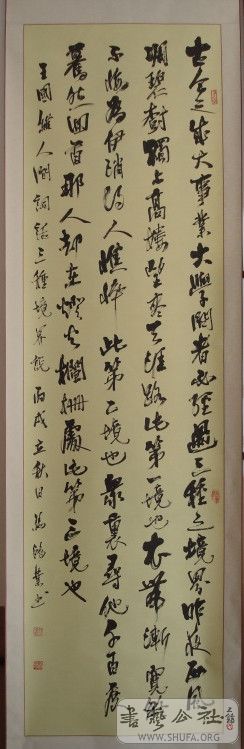 古今之成大事業大學問者必經過三種之境界昨夜西風
凋碧樹獨上高樓望盡天涯路此第一境也衣帶漸寬終
不悔為伊消得人憔悴此第二境也眾裏尋他千百度
驀然回首那人却在燈火欄珊處此第三境也
王國維人間詞話三種境界說 丙戌立秋日
書公社
WWW.SHUFA.ORG